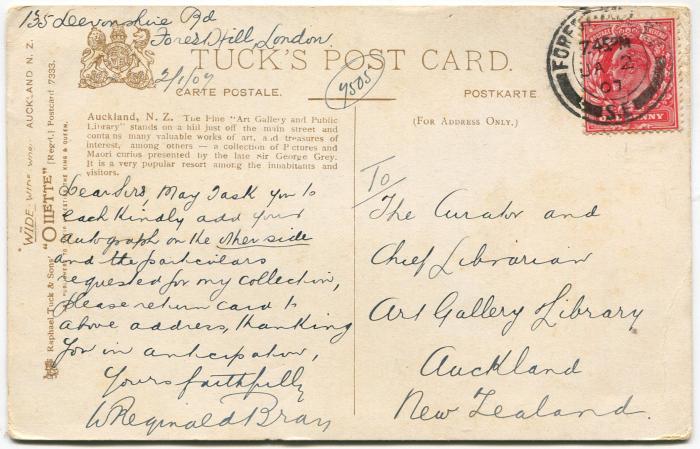 135 Devonshire Rd
Forest Hill, London
2/1/07
TUCK'S POST CARD.
CARTE POSTALE.
POSTKARTE
9505
Auckland, N. Z. The Fine "Art Gallery and Public
Library" stands on a hill just off the main street and
contains many valuable works of art, and treasures of
interest, among others — a collection of Pictures and
Maori curios presented by the late Sir George Grey.
It is a very popular resort among the inhabitants and
visitors.
(For Address Only.)
Dear Sirs, May I ask you to
each kindly add your
autograph on the other side
and the particulars
requested for my collection,
please return card to
above address, thanking
you in anticipation,
Yours faithfully
W Reginald Bray
To/
The Curator and
Chief Librarian
Art Gallery Library
Auckland
New Zealand.
AUCKLAND N. Z.
Raphael Tuck & Sons' "OILETTE" [Regd.] Postcard 7333.
THE KING & QUEEN.
FOREST
7 45 PM
JA 2
07
S.E.